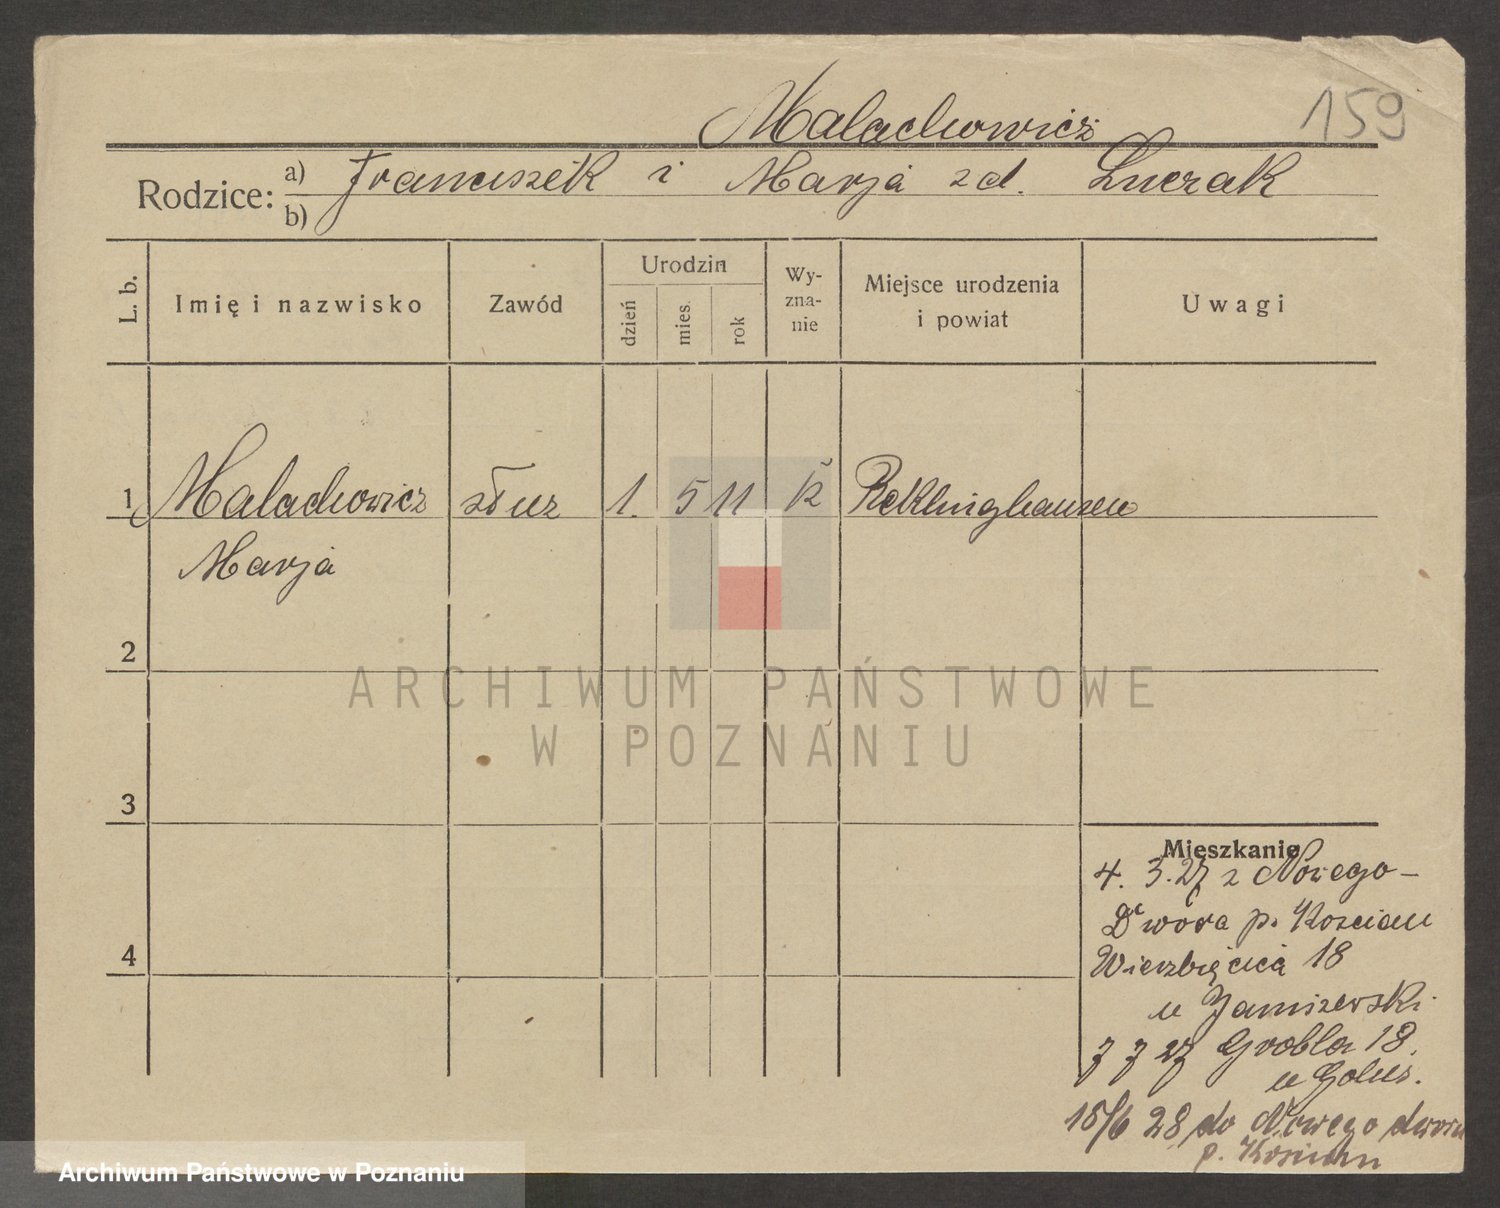 Malachowicz 159
Rodzice: a) Franciszek i Marja zd. Łuczak
b)
L. b. Imię i nazwisko Zawód Urodzin dzień mies. rok Wy-zna-nie Miejsce urodzenia i powiat Uwagi
1 Malachowicz służ 1. 5 11 k Reklinghausen
Marja
2
3
4
Mieszkanie
4. 3. 27 z Nowego-
Dwora p. Kościan
Wierzbięcica 18
u Janiszewski
7 7 27 Grobla 18.
u Golus.
15/6 28 do Nowego dworu
p. Kościan
ARCHIWUM PAŃSTWOWE
W POZNANIU
Archiwum Państwowe w Poznaniu